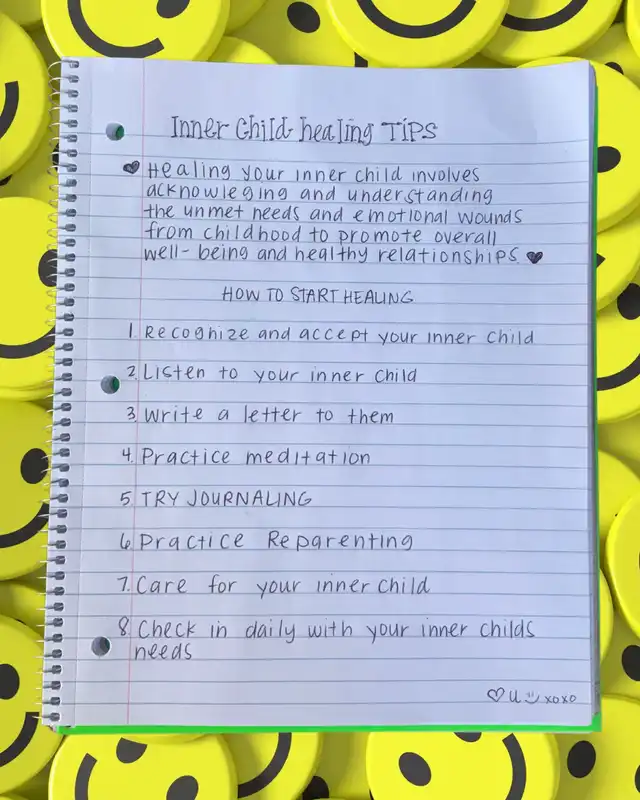 Inner Child healing TIPS
Healing your inner child involves
acknowleging and understanding
the unmet needs and emotional wounds
from childhood to promote overall
well-being and healthy relationships
HOW TO START HEALING
1. Recognize and accept your inner child
2. Listen to your inner child
3. Write a letter to them
4. Practice meditation
5. TRY JOURNALING
6. Practice Reparenting
7. Care for your inner child
8. Check in daily with your inner childs
needs
♡ u xoxo